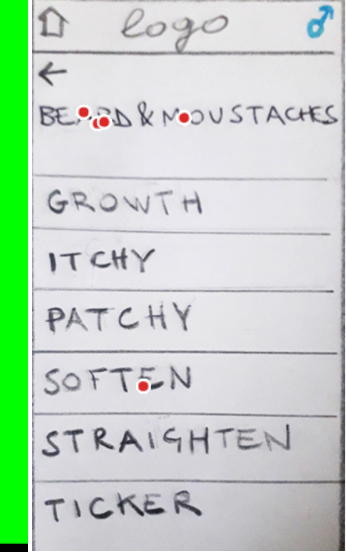 logo
BEARD & MOUSTACHES
GROWTH
ITCHY
PATCHY
SOFTEN
STRAIGHTEN
TICKER